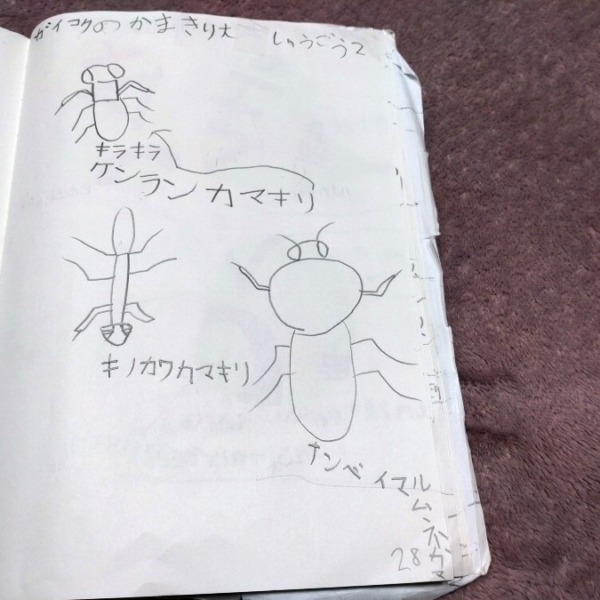 ガイコクのかまきり大 しゅうごう2
キラキラ
ケンランカマキリ
キノカワカマキリ
ナンベイマルムネカマ
28